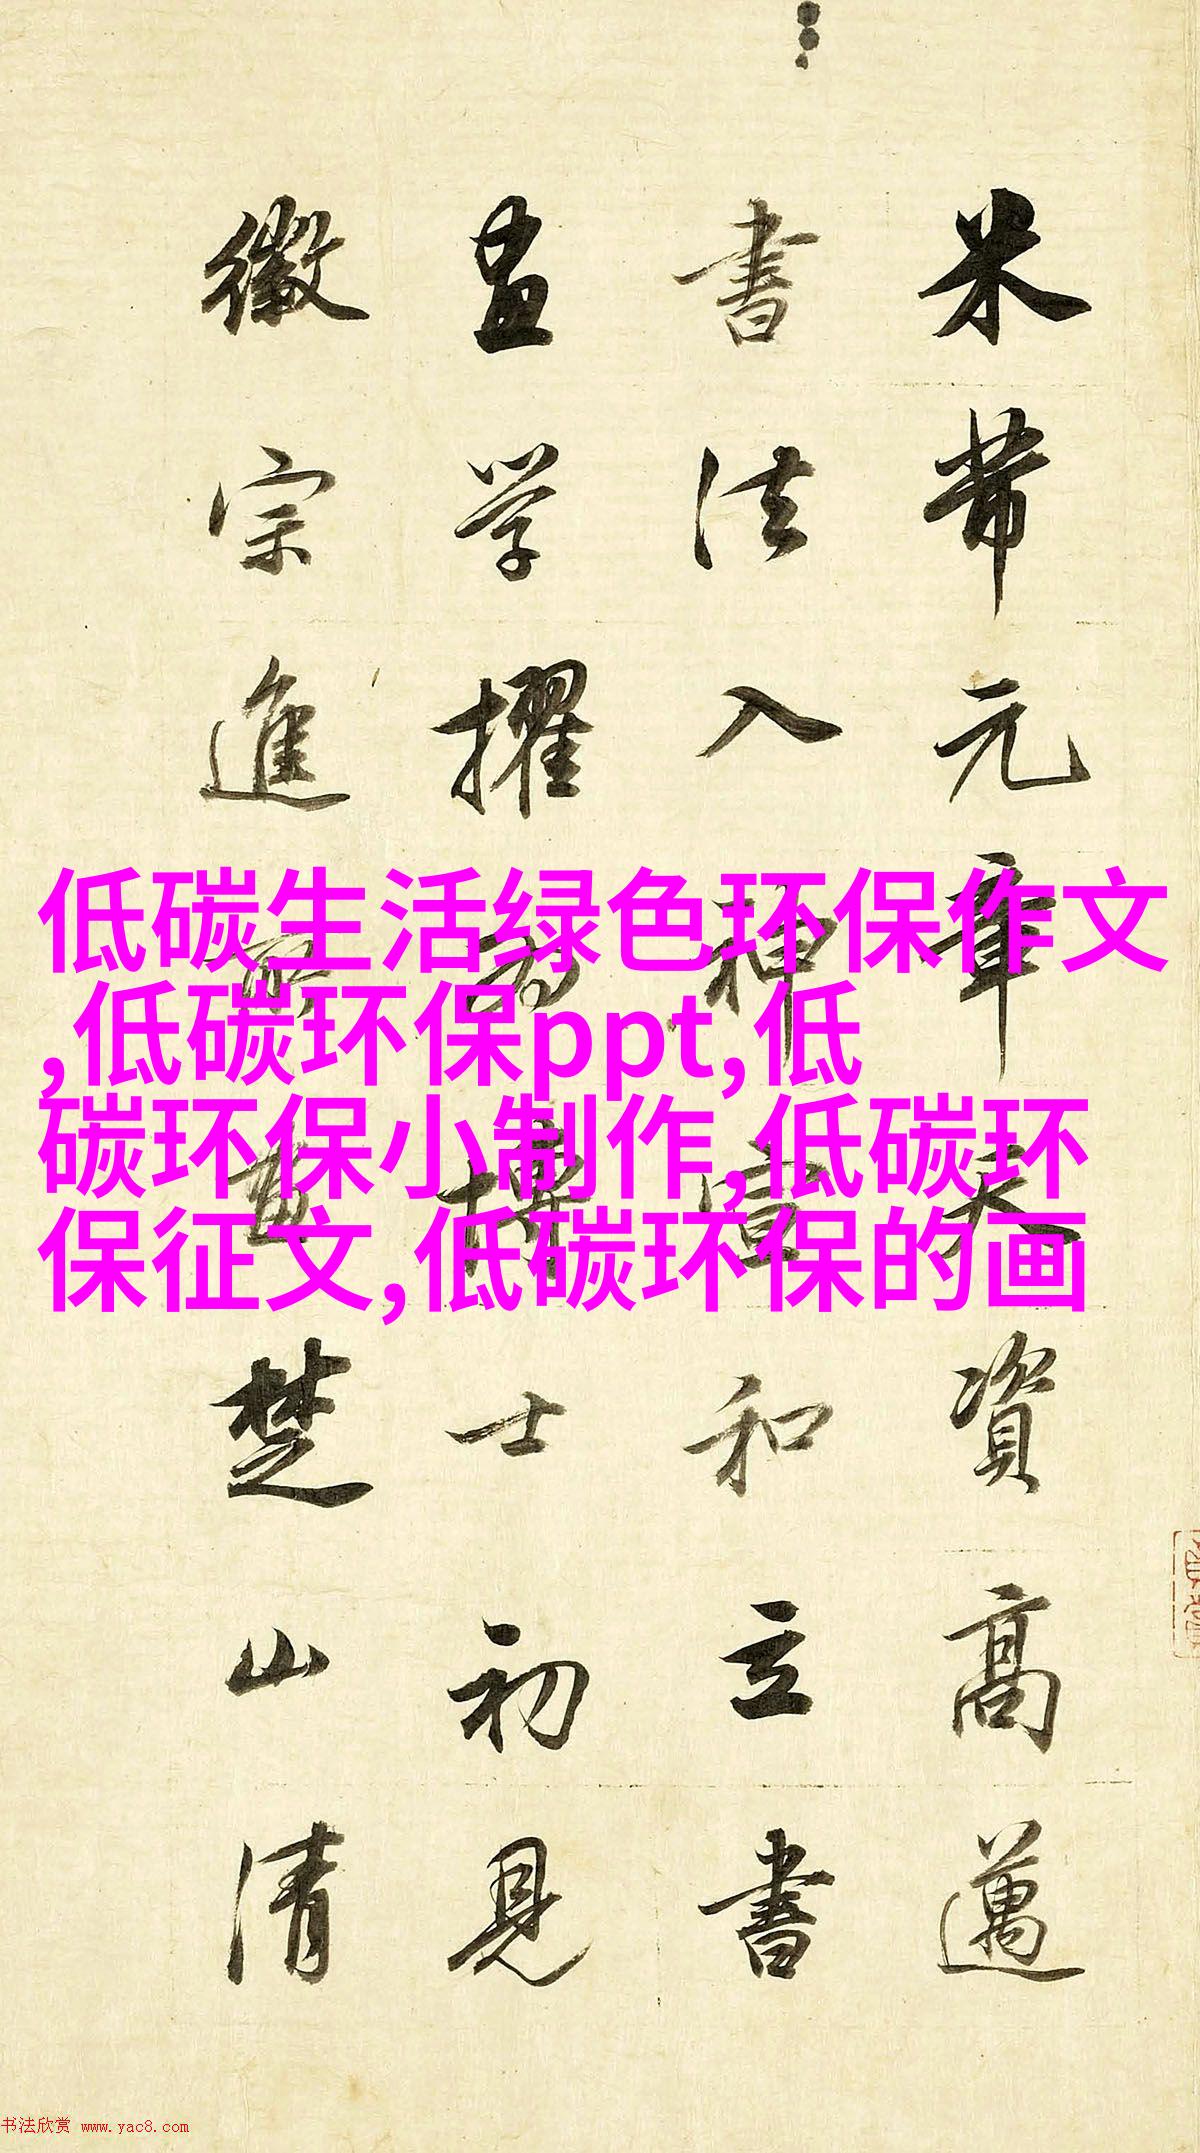 米芾元章天資高邁
書法入神宣和立書
畫学擢为博士初見
徽宗進所畫楚山清
低碳生活绿色环保作文
,低碳环保ppt,低
碳环保小制作,低碳环
保征文,低碳环保的画
书法欣赏 www.yac8.com